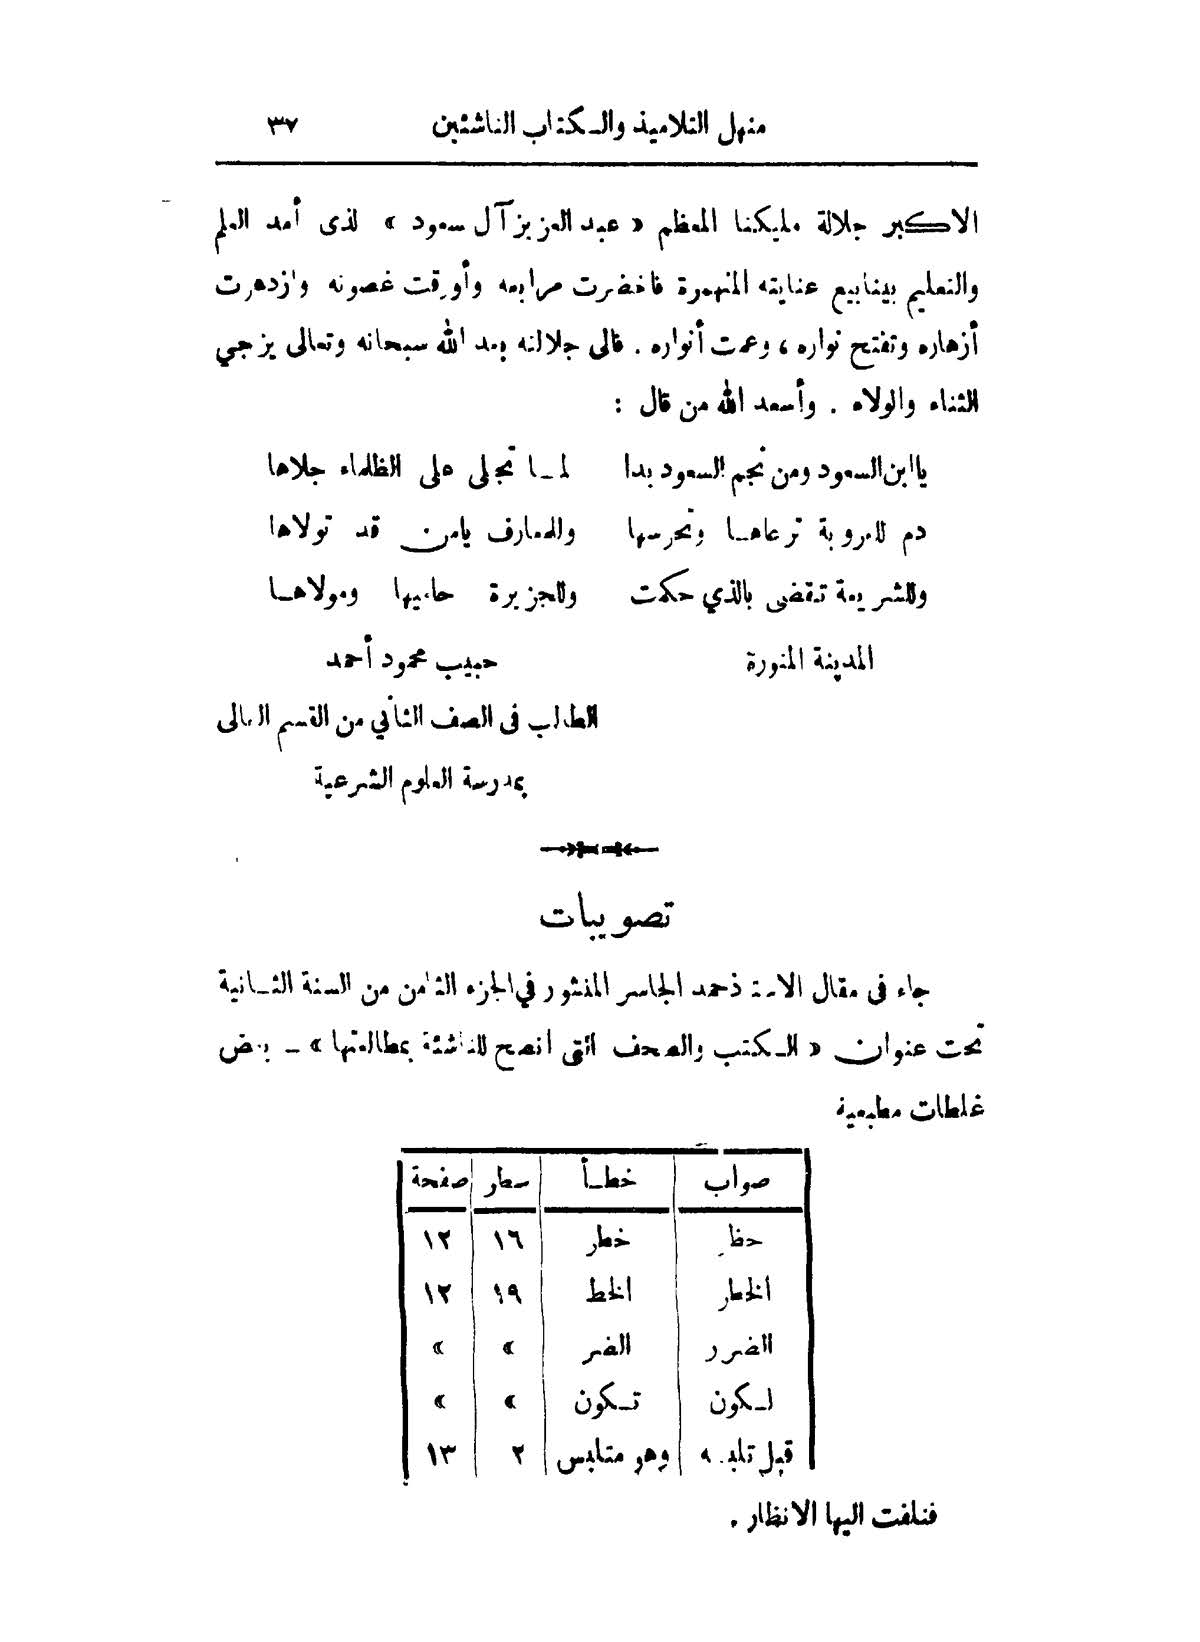 منهل التلاميذ والكتاب الناشئين ٣٧
الاكبر جلالة مليكنا المعظم « عبد العزيز آل سعود » لذى أمد العلم
والتعليم بينابيع عنايته المنهمرة فاخضرت مرابعه وأورقت غصونه وازدهرت
أزهاره وتفتح نواره ، وعمت أنواره . فالى جلالته بعد الله سبحانه وتعالى يزجي
الثناء والولاء . وأسعد الله من قال :
يا ابن السعود ومن نجم السعود بدا لمـا تجلى على الظلماء جلاها
دم للعروبة ترعاهـا وتحرسها وللمعارف يامن قد تولاها
وللشريعة تقضى بالذي حكمت وللجزيرة حاميها ومولاهـا
المدينة المنورة حبيب محمود أحمد
الطالب فى الصف الثاني من القسم العالى
بمدرسة العلوم الشرعية
تصويبات
جاء فى مقال الاستاذ حمد الجاسر المنشور في الجزء الثامن من السنة الثـانية
تحت عنوان « الكتب والصحف التى انصح للناشئة بمطالعتها » ـ بعض
غلطات مطبعية
صواب خطـأ سطر صفحة
حظر خطر ١٦ ١٢
الخطر الخط ١٩ ١٢
الضرر الضر » »
لـكون تـكون » »
قبل تلبسه وهو متلبس ٢ ١٣
فنلفت اليها الانظار .